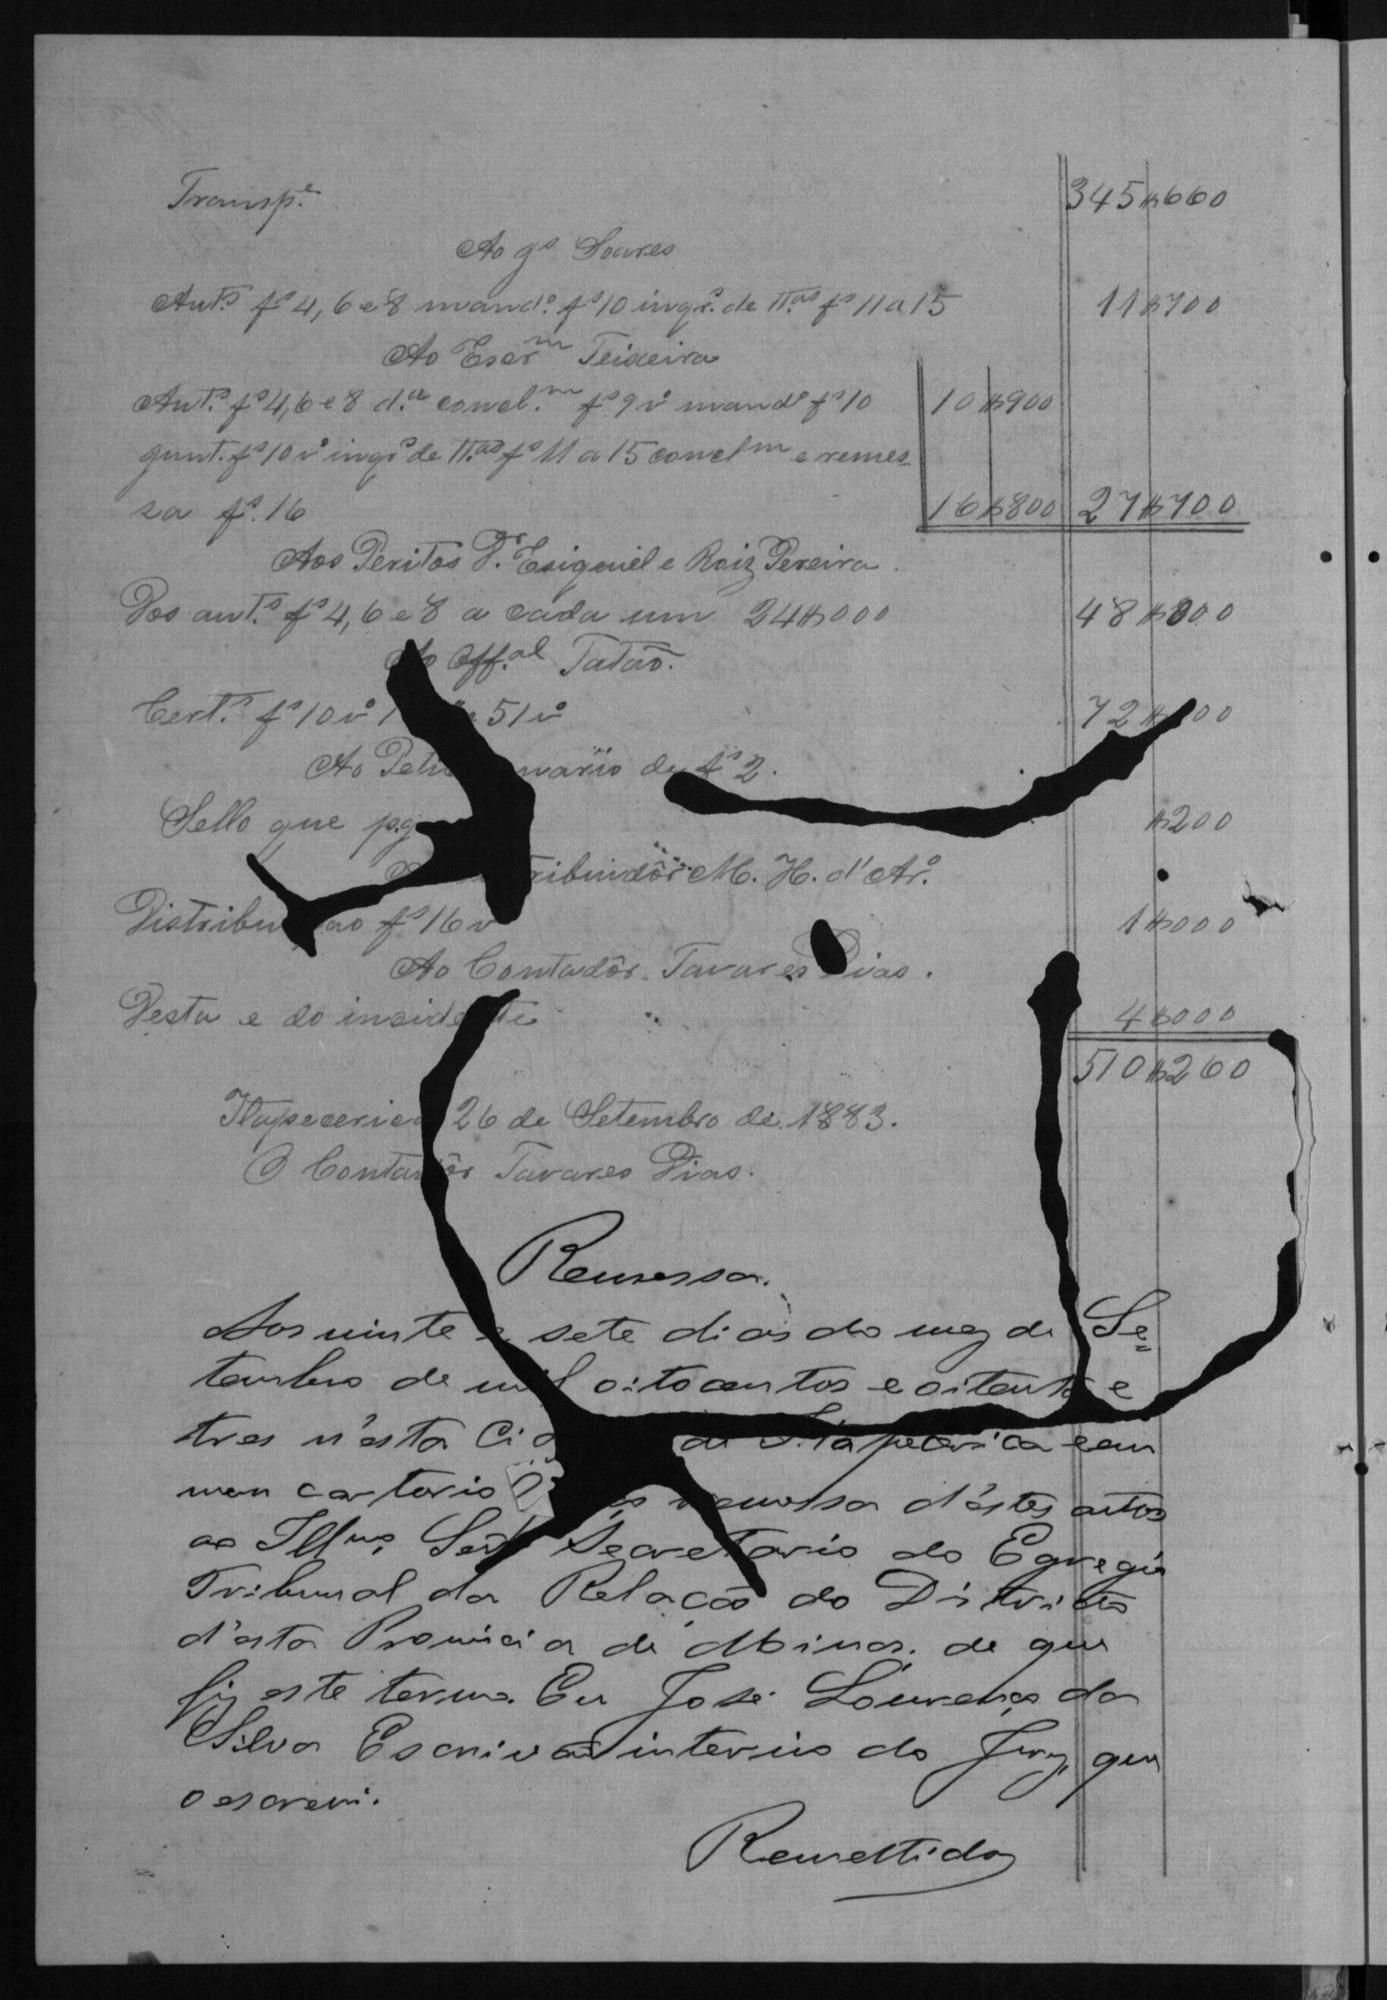 Transp.e 345$660
Ao gs Soares
Aut.s fs 4, 6 e 8 mand.o fs 10 inqr.s de TT.as fs 11 a 15 11$700
Ao Escr.m Teixeira
Aut.s fs 4, 6 e 8 d.a concl.m fs 9 vo mando fs 10 10$900
junt. fs 10 vo inqrs de TT.as fs 11 a 15 conclm e remes-
sa fs. 16 16$800 27$700
Aos Peritos Dr. Esiquiel e Roiz Pereira.
Dos aut.s fs 4, 6 e 8 a cada um 24$000 48$000
Ao Off.al Tatão.
Cert.s fs 10 vo 51 vo 72$ 00
Ao de fs 2.
Sello que pg $200
M. H. d'Ar.o
Distribuição fs 16 v 1$000
Ao Contadôr Tavares Dias.
Desta e do incidente 4$000
510$260
Itapecerica 26 de Setembro de 1883.
O Contadôr Tavares Dias.
Remessa.
Aos vinte e sete dias do mez de Se=
tembro de mil oitocentos e oitenta e
tres n'esta Cid de Itapecerica e em
meu cartorio remessa d'estes autos
ao Illmo. Senr Secretario do Egregio
Tribunal da Relação do Districto
d'esta Provincia de Minas. de que
fiz este termo. Eu José Lourenço da
Silva Escrivão interino do Jury, que
o escrevi.
Remettido